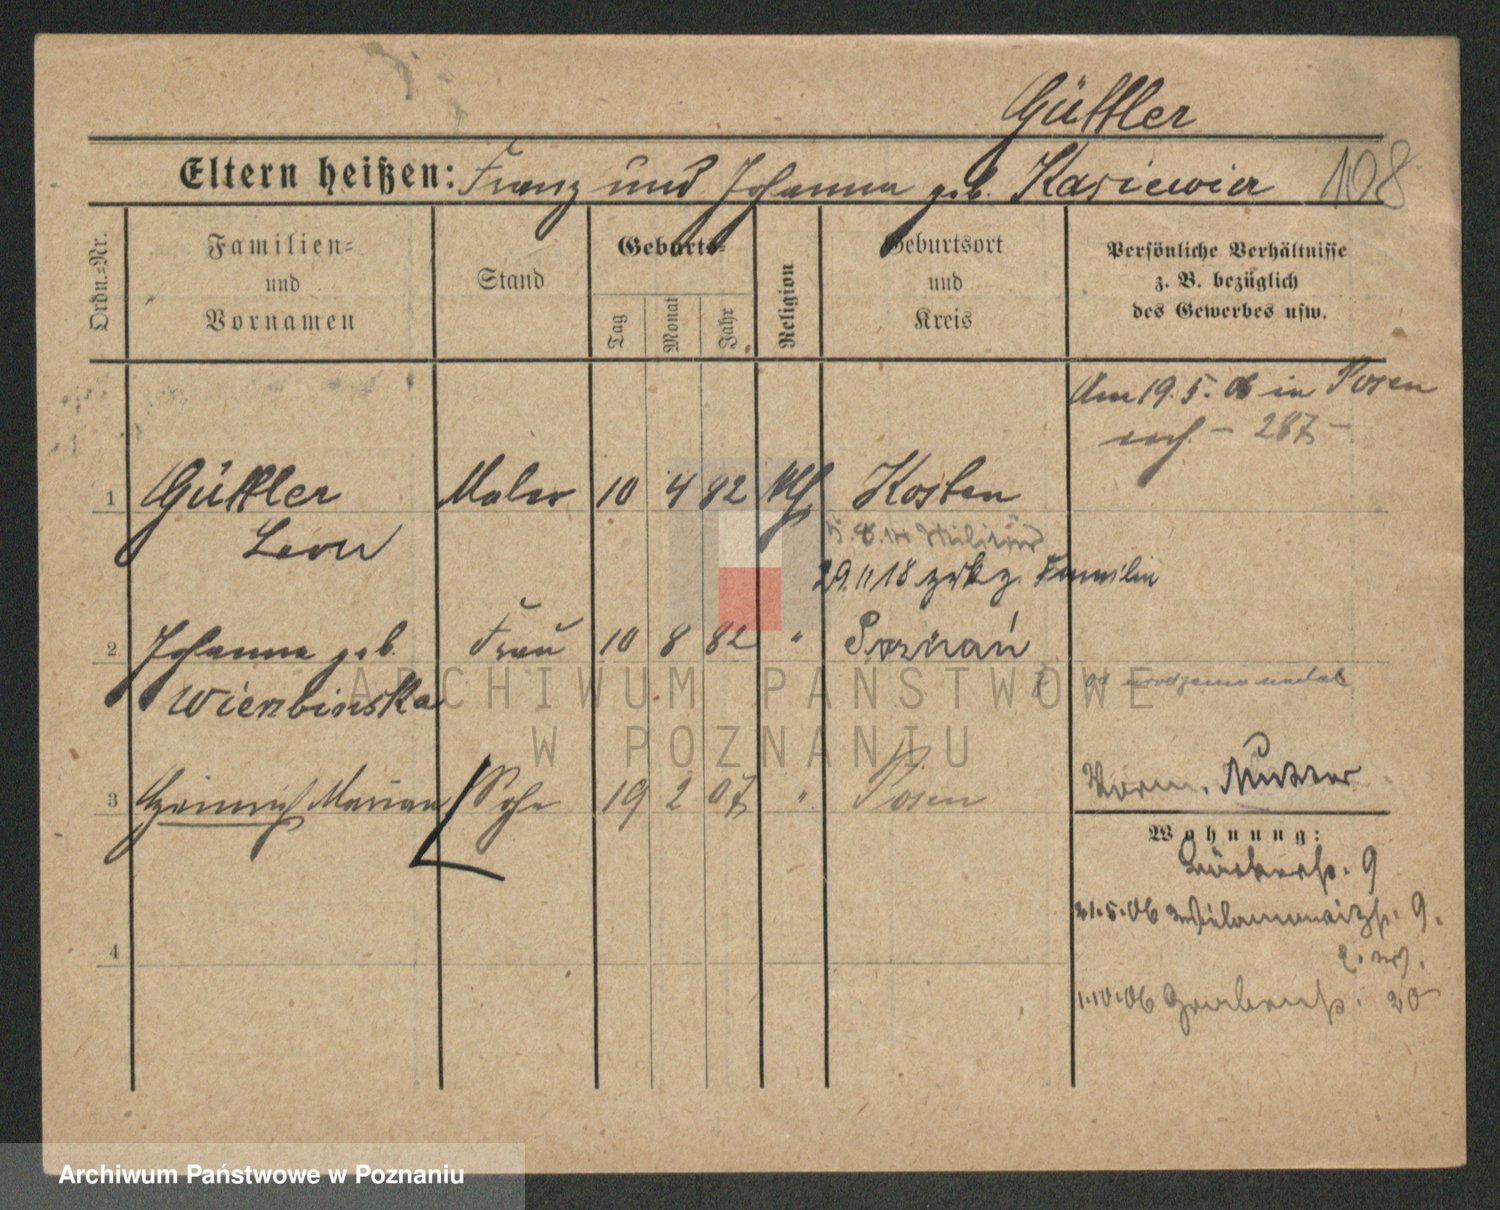 Güttler
Eltern heißen: Franz und Johanna geb. Kasiewicz 108
Ordn.=Nr.
Familien=
und
Vornamen
Stand
Geburts=
Tag
Monat
Jahr
Religion
Geburtsort
und
Kreis
Persönliche Verhältnisse
z. B. bezüglich
des Gewerbes usw.
Am 19. 5. 06 in Posen
- 287 -
1 Güttler Maler 10 4 82 kth Kosten
Leon
5. 8. 14 Militär
29.11 18 zrkz. Familie
2 Johanna geb. Frau 10 8 82 " Poznań
Wierzbinska
od urodzenia
3 Heinrich Marian Sohn 19 2 07 " Posen
Vorm. Mutter
Wohnung:
9
21.5.06 9.
1.10.06 Grabenstr. 20
4
ARCHIWUM PAŃSTWOWE
W POZNANIU
Archiwum Państwowe w Poznaniu